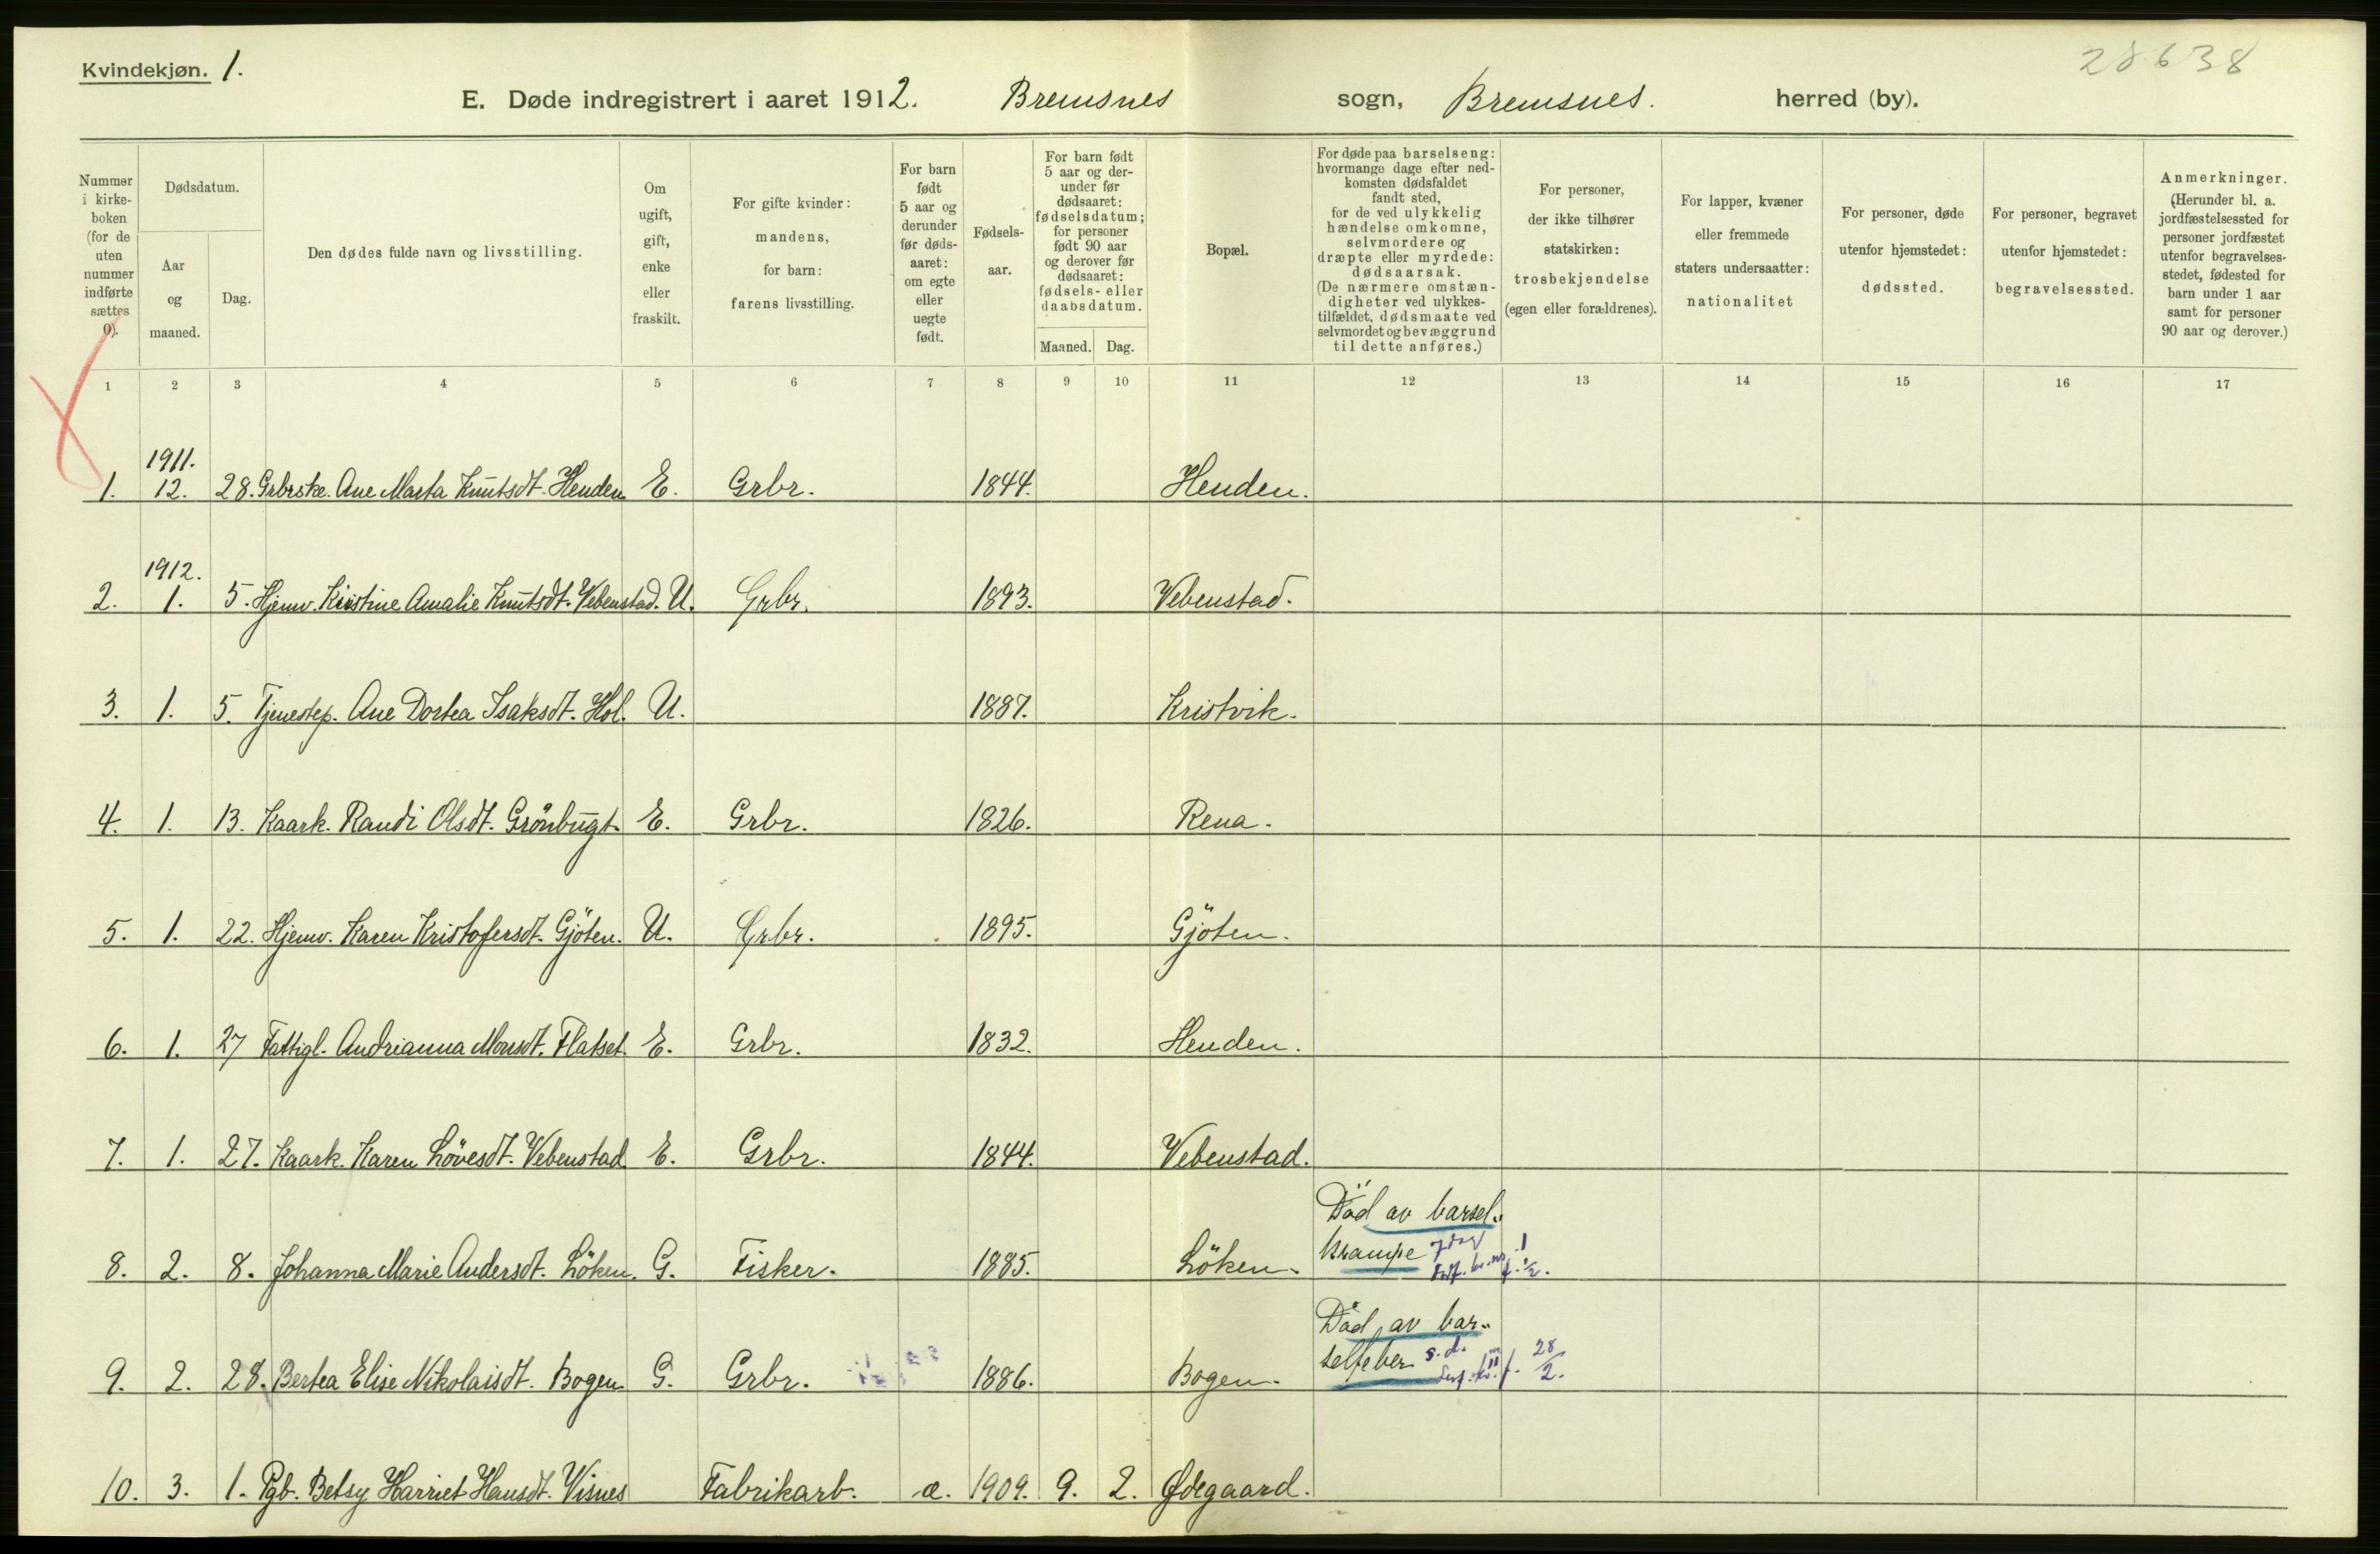 Kvindekjøn. 1.
28638
E. Døde indregistrert i aaret 1912. Bremsnes sogn, Bremsnes. herred (by).
Nummer i kirke- boken (for de uten nummer indførte sættes 0).
Dødsdatum.
Aar og maaned.
Dag.
Den dødes fulde navn og livsstilling.
Om ugift, gift, enke eller fraskilt.
For gifte kvinder: mandens, for barn: farens livsstilling.
For barn født 5 aar og derunder før døds- aaret: om egte eller uegte født.
Fødsels- aar.
For barn født 5 aar og der- under før dødsaaret: fødselsdatum; for personer født 90 aar og derover før dødsaaret: fødsels- eller daabsdatum.
Maaned. Dag.
Bopæl.
For døde paa barselseng: hvormange dage efter ned- komsten dødsfaldet fandt sted, for de ved ulykkelig hændelse omkomne, selvmordere og dræpte eller myrdede: dødsaarsak. (De nærmere omstæn- digheter ved ulykkes- tilfældet, dødsmaate ved selvmordet og bevæggrund til dette anføres.)
For personer, der ikke tilhører statskirken: trosbekjendelse (egen eller forældrenes).
For lapper, kvæner eller fremmede staters undersaatter: nationalitet
For personer, døde utenfor hjemstedet: dødssted.
For personer, begravet utenfor hjemstedet: begravelsessted.
Anmerkninger. (Herunder bl. a. jordfæstelsessted for personer jordfæstet utenfor begravelses- stedet, fødested for barn under 1 aar samt for personer 90 aar og derover.)
1 2 3 4 5 6 7 8 9 10 11 12 13 14 15 16 17
1911.
1. 12. 28. Grbrske. Ane Marta Knutsdt. Henden E. Grbr. 1844. Henden.
1912.
2. 1. 5. Hjemv. Kristine Amalie Knutsdt. Vebenstad. U. Grbr. 1893. Vebenstad.
3. 1. 5. Tjenestep. Ane Dortea Isaksdt. Hol. U. 1887. Kristvik.
4. 1. 13. Kaark. Randi Olsdt. Grönbugt. E. Grbr. 1826. Rena.
5. 1. 22. Hjemv. Karen Kristofersdt. Gjöten. U. Grbr. 1895. Gjöten.
6. 1. 27 Fattigl. Andrianna Monsdt. Flatset. E. Grbr. 1832. Henden.
7. 1. 27. Kaark. Karen Lövesdt. Vebenstad E. Grbr. 1844. Vebenstad.
Död av barsel-
8. 2. 8. Johanna Marie Andersdt. Löken. G. Fisker. 1885. Löken. krampe 7 dag
Död av bar-
9. 2. 28. Bertea Elise Nikolaisdt. Bogen G. Grbr. 1886. Bogen. selfeber s.d. 28/2.
10. 3. 1. Pgb. Betsy Harriet Hansdt. Visnes Fabrikarb. æ. 1909. 9. 2. Ødegaard.